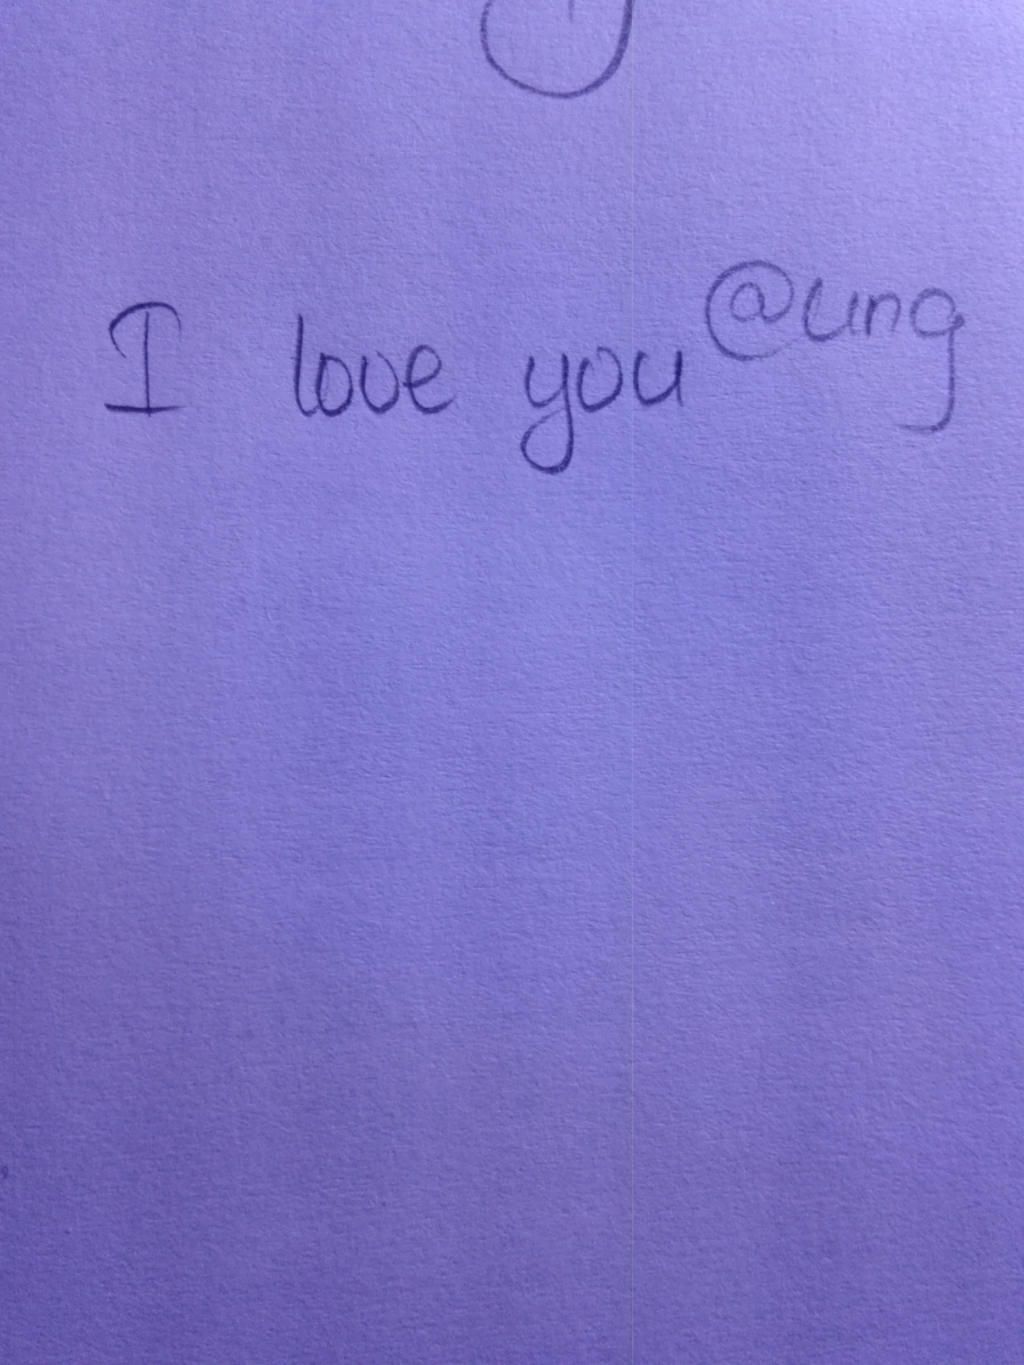 I love you @ung